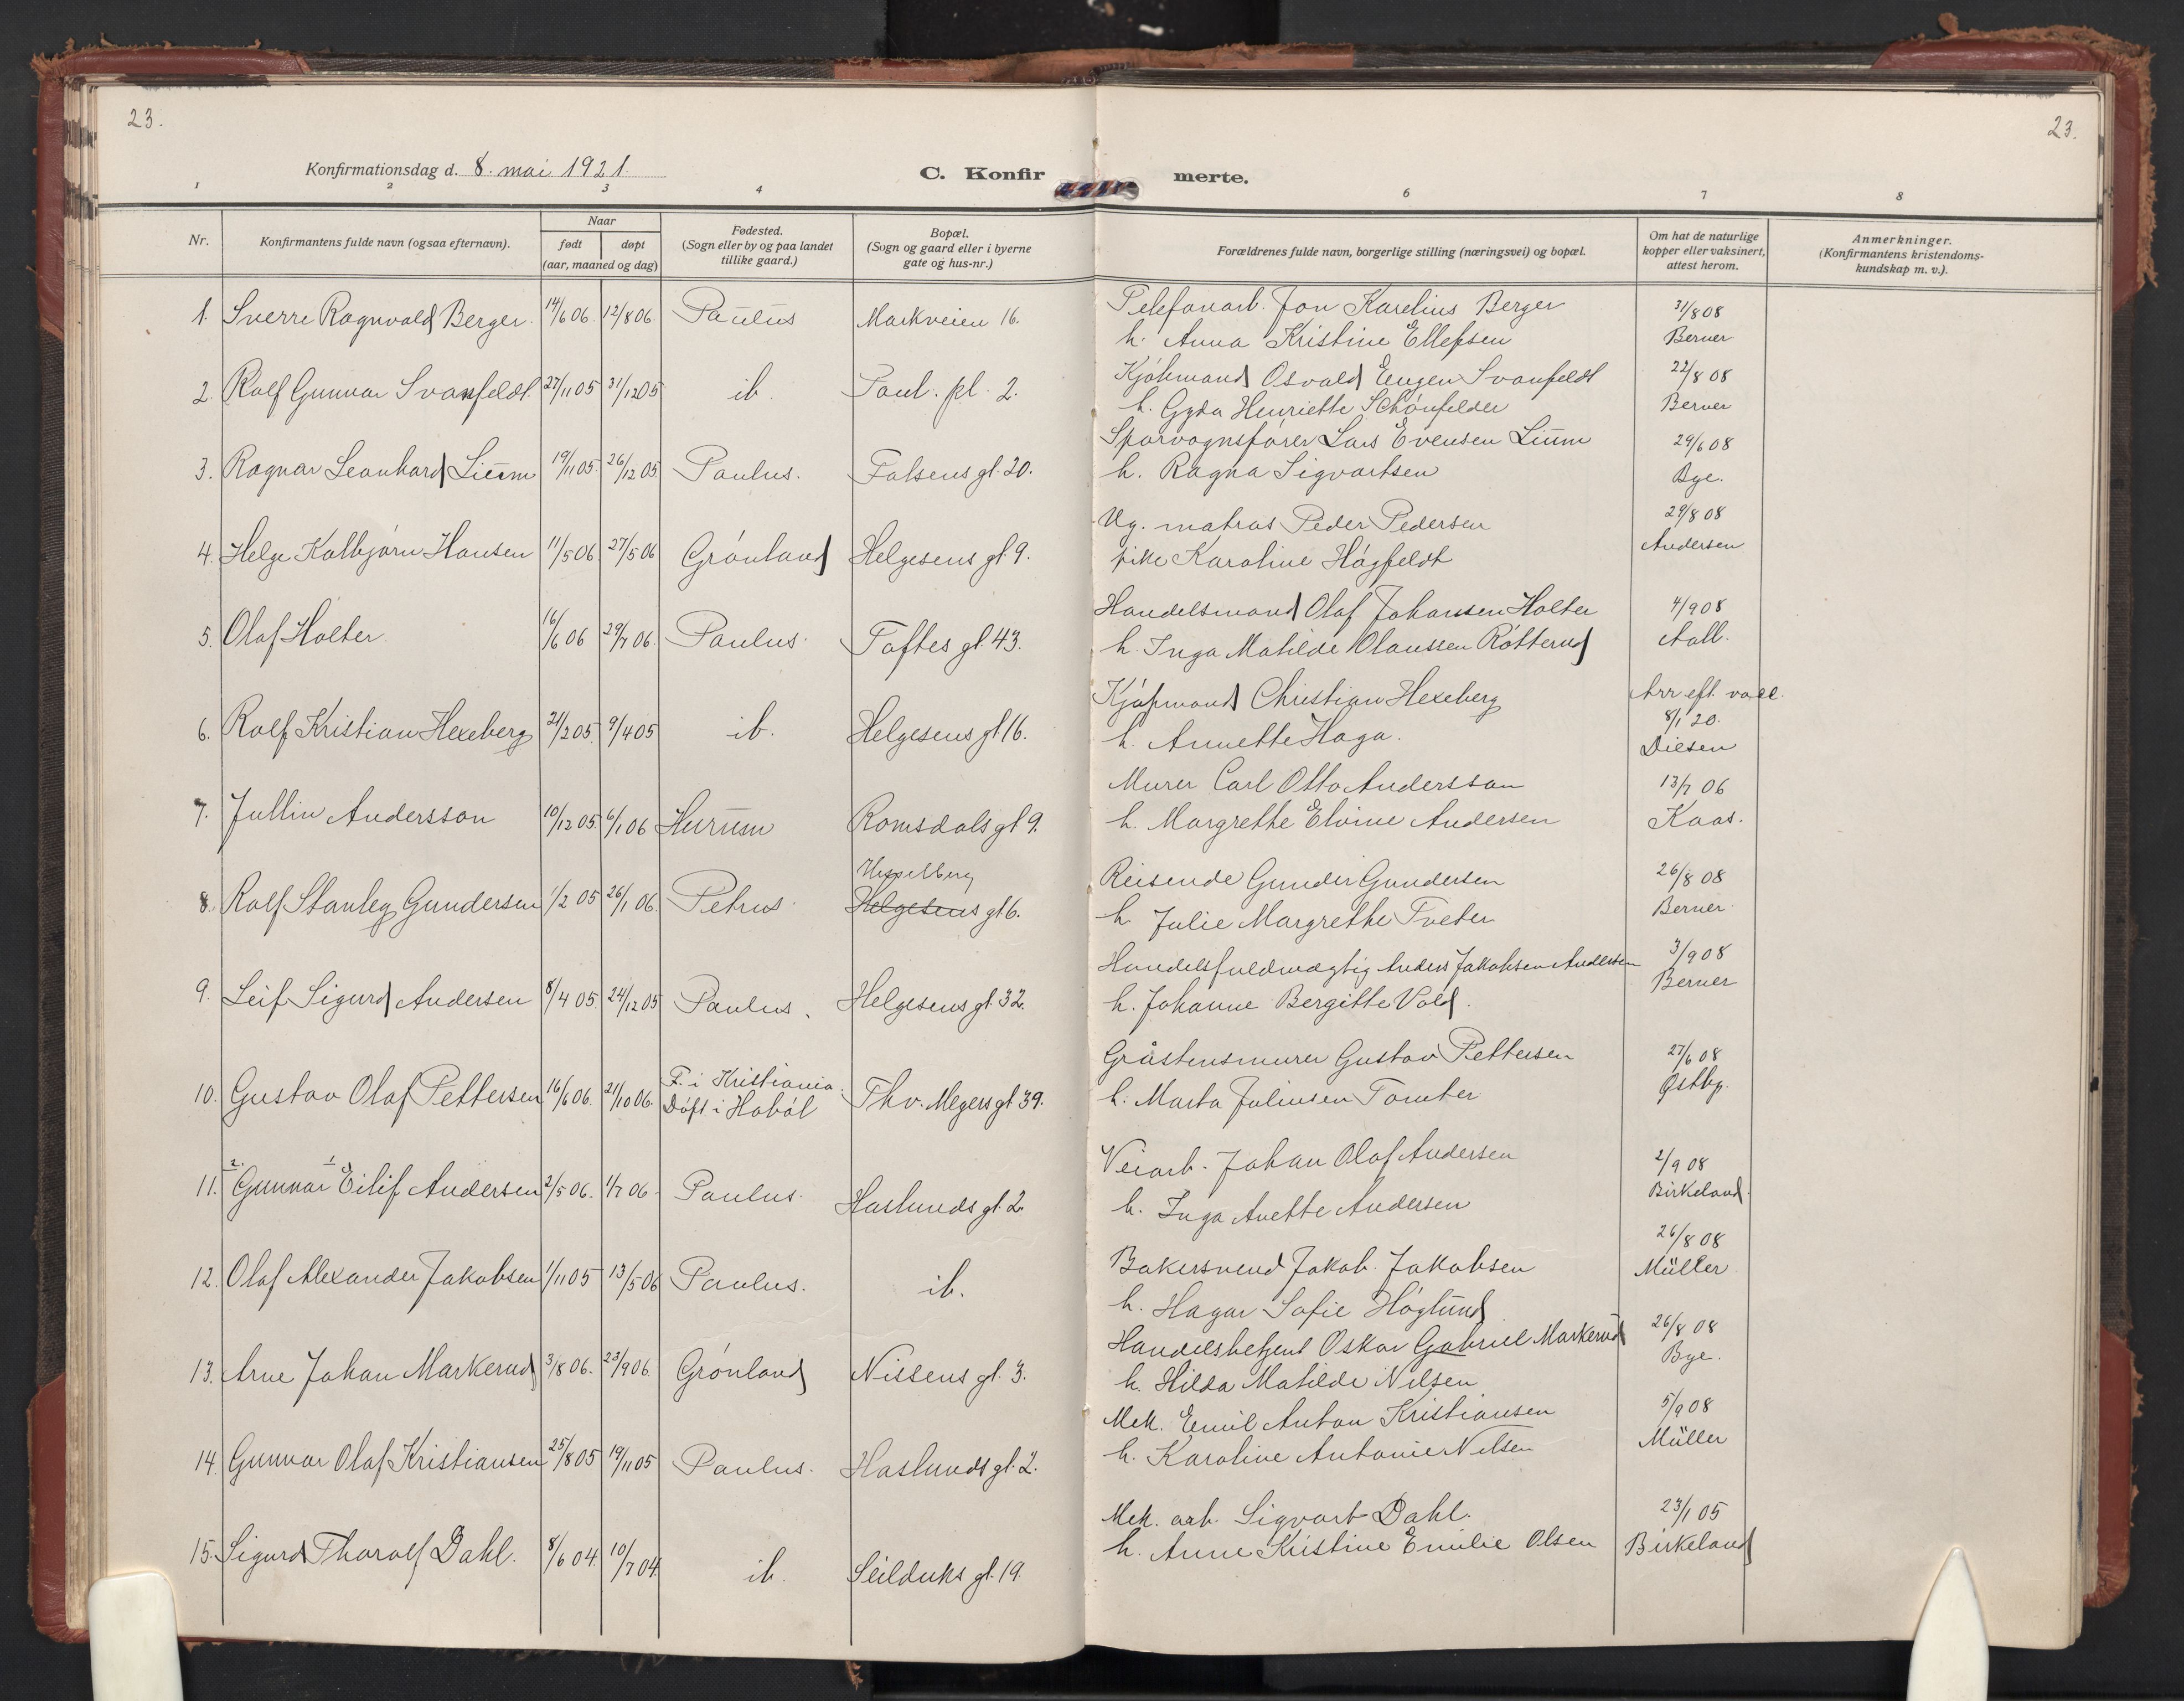 23.
23.
Konfirmationsdag d. 8. mai 1921.
C. Konfirmerte.
1 2 3 4 6 7 8
Nr.
Konfirmantens fulde navn (ogsaa efternavn).
Naar
født
døpt
(aar, maaned og dag)
Fødested.
(Sogn eller by og paa landet
tillike gaard.)
Bopæl.
(Sogn og gaard eller i byerne
gate og hus-nr.)
Forældrenes fulde navn, borgerlige stilling (næringsvei) og bopæl.
Om hat de naturlige
kopper eller vaksinert,
attest herom.
Anmerkninger.
(Konfirmantens kristendoms-
kundskap m. v.).
1. Sverre Ragnvald Berger. 14/6 06. 12/8 06. Paulus Markveien 16.
Telefonarb. Jon Karelius Berger 31/8 08
h. Anna Kristine Ellefsen Berner
2. Rolf Gunnar Svanfeldt 27/11 05 31/12 05 ib. Paul. pl. 2.
Kjøbmand Osvald Eugen Svanfeldt 22/8 08
h. Gyda Henriette Schønfelder Berner
3. Ragnar Leonhard Lium 19/11 05. 26/12 05 Paulus. Falsens gt. 20.
Sporvognsfører Lars Evensen Lium 29/6 08
h. Ragna Sigvartsen Bye.
4. Helge Kolbjørn Hansen 11/5 06. 27/5 06 Grønland Helgesens gt 9.
Ug. matros Peder Pedersen 29/8 08
pike Karoline Høgfeldt Andersen
5. Olaf Holter 16/6 06 29/7 06. Paulus Toftes gt. 43.
Handelsmand Olaf Johansen Holter 4/9 08
h. Inga Matilde Olaussen Røtterud Aall.
6. Rolf Kristian Hexeberg 21/2 05. 9/4 05 ib. Helgesens gt 16.
Kjøpmand Christian Hexeberg Arr eft. vacc.
8/1 20.
h. Annette Haga. Diesen
7. Jullin Andersson 10/12 05. 6/1 06 Hurum Romsdals gt 9.
Murer Carl Otto Andersson 13/7 06
h. Margrethe Elvine Andersen Kaas.
8. Rolf Stanley Gundersen 1/2 05 26/1 06. Petrus Hesselberg
Helgesens gt 6.
Reisende Gunder Gundersen 26/8 08
h. Julie Margrethe Tveter Berner
9. Leif Sigurd Andersen 8/4 05. 24/12 05 Paulus. Helgesens gt. 32.
Handelsfuldmægtig Anders Jakobsen Andersen 3/9 08
h. Johanne Bergitte Vold. Berner
10. Gustav Olaf Pettersen 16/6 06. 21/10 06. F. i Kristiania.
Døpt i Hobøl Thv. Meyers gt 39.
Gråstensmurer Gustav Pettersen 27/6 08
h. Marta Julinsen Tomter Østby.
2. 1.
11. Gunnar Eilif Andersen 2/5 06. 1/7 06 Paulus. Haslunds gt. 2.
Veiarb. Johan Olaf Andersen 2/9 08
h. Inga Anette Andersen Birkeland.
12. Olaf Alexander Jakobsen 1/11 05 13/5 06 Paulus. ib.
Bakersvend Jakob Jakobsen 26/8 08
h. Hagar Sofie Høglund Müller
13. Arne Johan Markerud 3/8 06. 23/9 06. Grønland Nissens gt. 3.
Handelsbetjent Oskar Gabriel Markerud 26/8 08
h. Hilda Matilde Nilsen Bye.
14. Gunnar Olaf Kristiansen 25/8 05 19/11 05 Paulus. Haslunds gt. 2.
Mek. Emil Anton Kristiansen 5/9 08
h. Karoline Antonie Nilsen Müller
15. Sigurd Thoralf Dahl. 8/6 04. 10/7 04. ib. Seilduks gt. 19.
Mek. arb. Sigvart Dahl. 23/1 05
h. Anne Kristine Emilie Olsen Birkeland